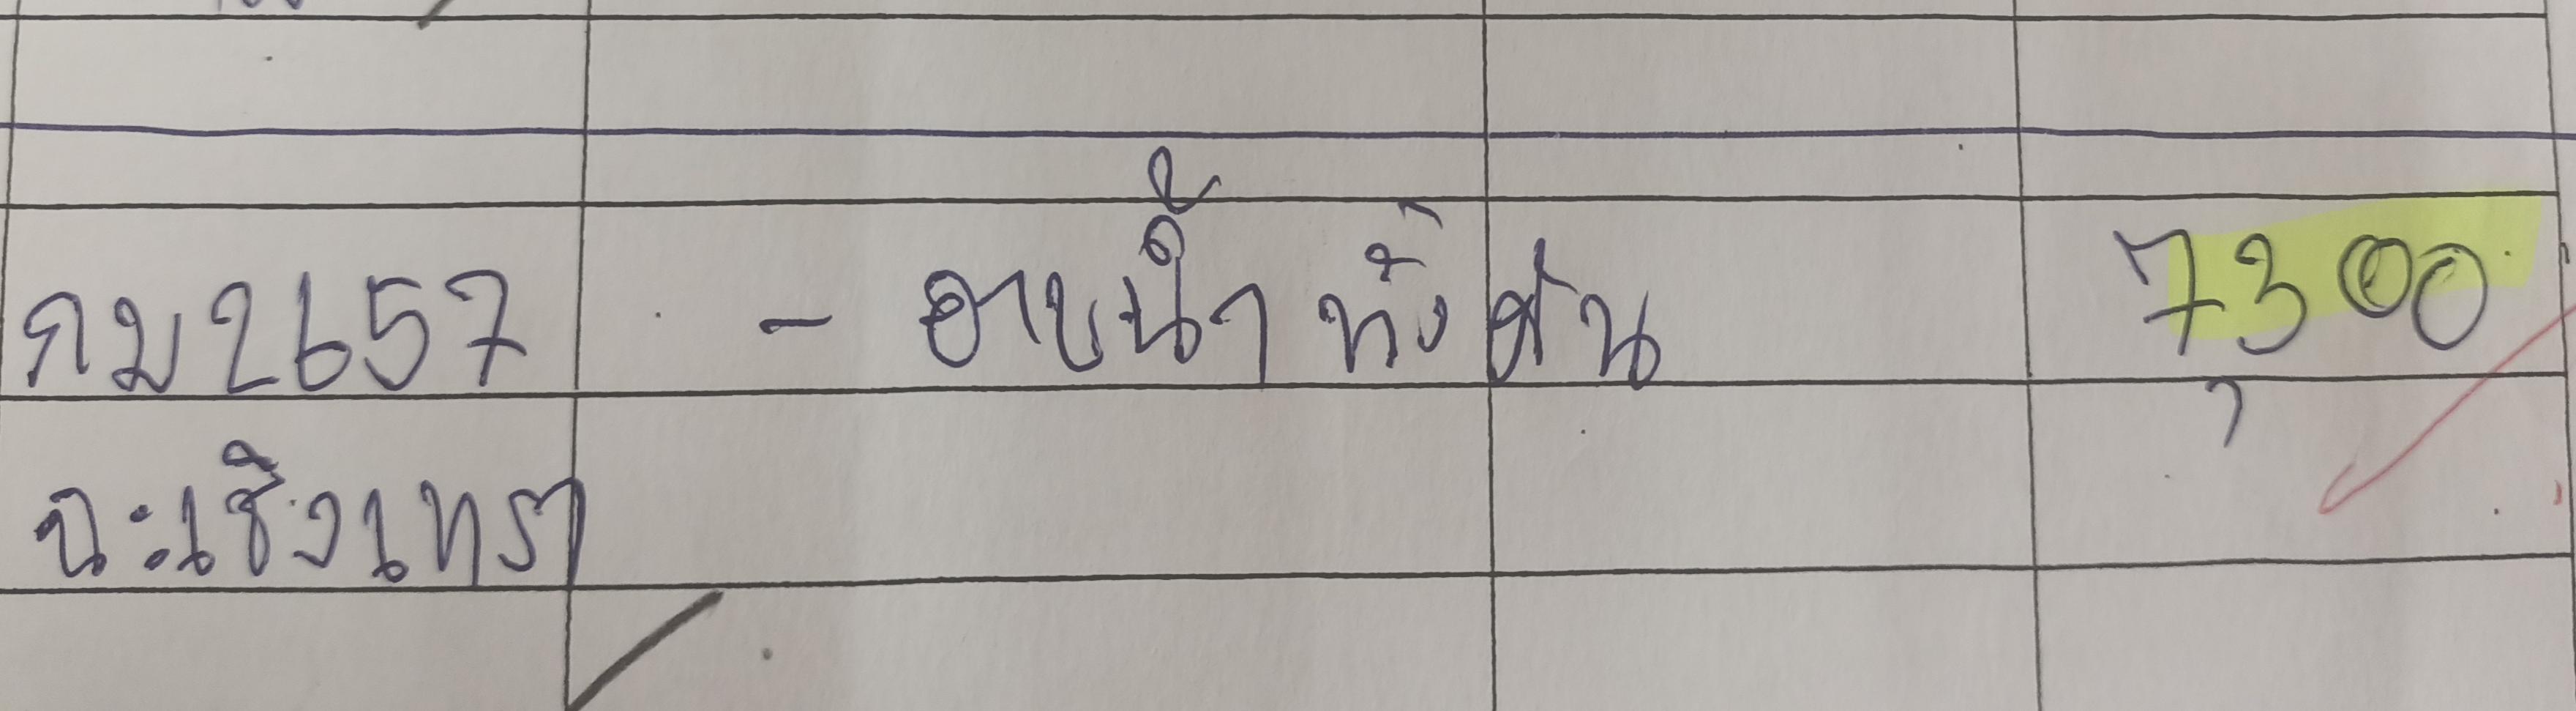 กม 2657 - อาบน้ำ ทั้งคัน 7,300
ฉะเชิงเทรา